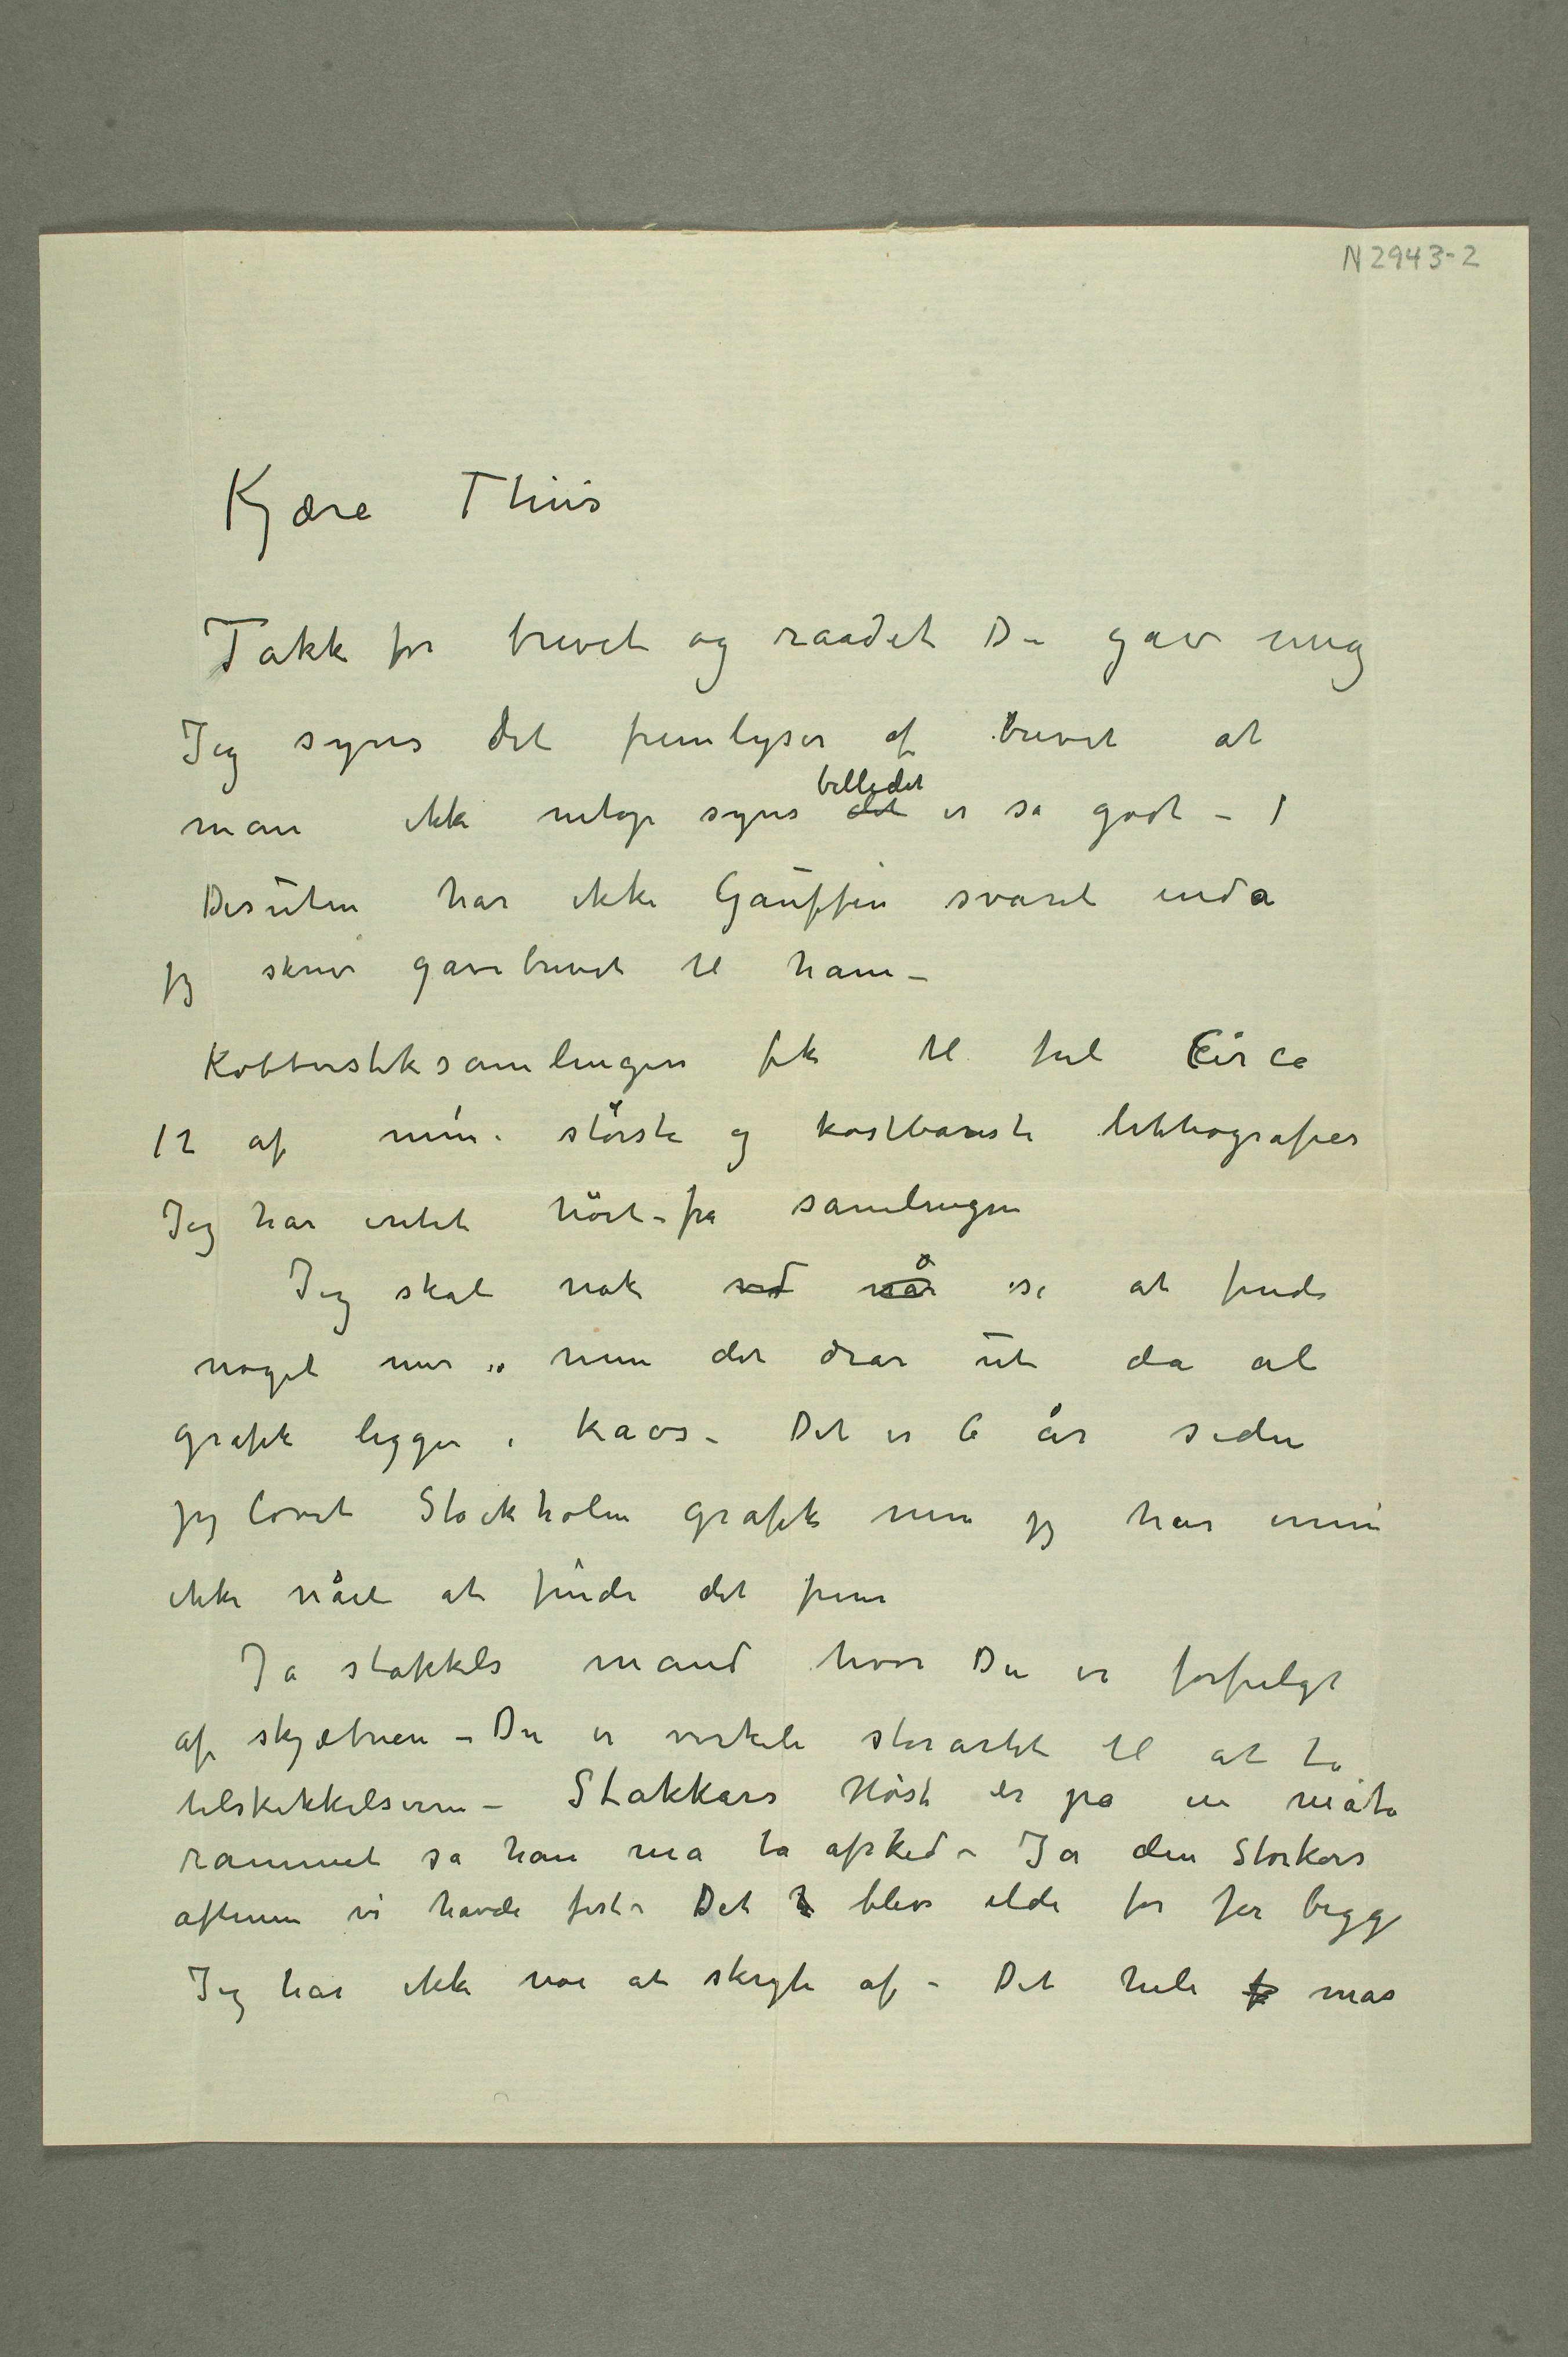 N 2943-2
Kjære Thiis
Takk for brevet og raadet Du gav mig
Jeg synes det fremlyser af brevet at
man ikke netop synes billedet er så godt – I
Desuten har ikke Gauffin svaret enda
jeg skrev gavebrevet til ham –
Kobberstiksamlingen fik til jul Circa
12 af mine største og kostbareste lithografier
Jeg har intet hört fra samlingen
Jeg skal nok se at finde
noget mer men det drar ut da al
grafik ligger i kaos – Det er 6 år siden
jeg lovet Stockholm grafik men jeg har ennu
ikke nået at finde det frem
Ja stakkels mand hvor Du er forfulgt
af skjæbnen – Du er virkeli storartet til at ta
tilskikkelserne – Stakkars Høst er på en måte
rammet så han må ta afsked – Ja den Storkars
aftenen vi havde fest – Det blev ilde for jer begge
Jeg har ikke noe at skryte af – Det hele mas